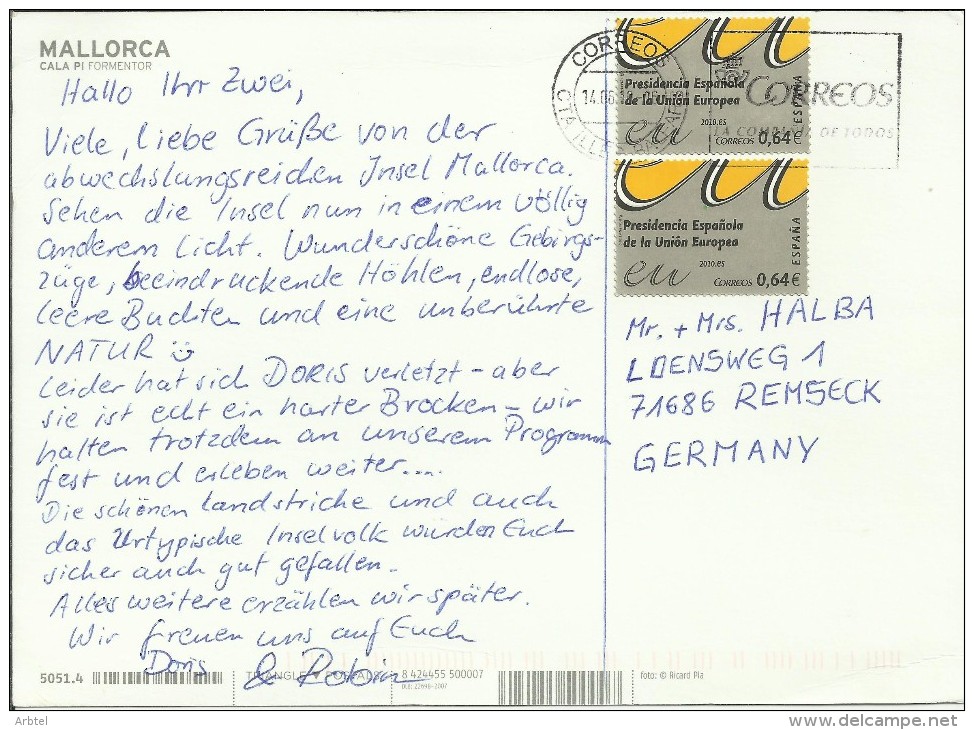 MALLORCA
CALA PI FORMENTOR
Hallo Ihr Zwei,
Viele, liebe Grüße von der
abwechslungsreichen Insel Mallorca.
Sehen die Insel nun in einem völlig
anderem Licht. Wunderschöne Gebirgs-
züge, beeindruckende Höhlen, endlose,
leere Buchten und eine unberührte
NATUR
Leider hat sich DORIS verletzt - aber
sie ist echt ein harter Brocken - wir
halten trotzdem an unserem Programm
fest und erleben weiter....
Die schönen Landstriche und auch
das Urtypische Inselvolk würden Euch
sicher auch gut gefallen.
Alles weitere erzählen wir später.
Wir freuen uns auf Euch
Doris & Robin
CORREOS
14.06
CORREOS
LA DE TODOS
Presidencia Española
de la Unión Europea
eu
2010.es
CORREOS 0,64€
ESPAÑA
Presidencia Española
de la Unión Europea
eu
2010.es
CORREOS 0,64€
ESPAÑA
Mr. + Mrs. HALBA
LOENSWEG 1
71686 REMSECK
GERMANY
5051.4
TRIANGLE POSTALS
8 424455 500007
foto: © Ricard Pla
Arbtel
www.delcampe.net